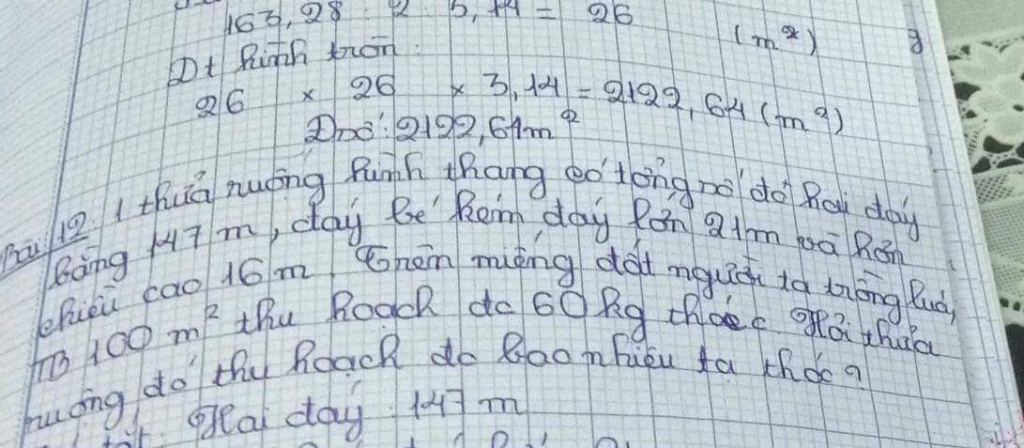 163,28 : 2 : 3,14 = 26 (m²)
Dt hình tròn :
26 × 26 × 3,14 = 2122,64 (m²)
Đ số : 2122,64m²
Bài 12. 1 thửa ruộng hình thang có tổng số đo hai đáy
bằng 147 m, đáy bé kém đáy lớn 21m và hơn
chiều cao 16 m. Trên miếng đất người ta trồng lúa,
TB 100 m² thu hoạch dc 60 kg thóc. Hỏi thửa
ruộng đó thu hoạch dc bao nhiêu tạ thóc?
Hai đáy : 147 m